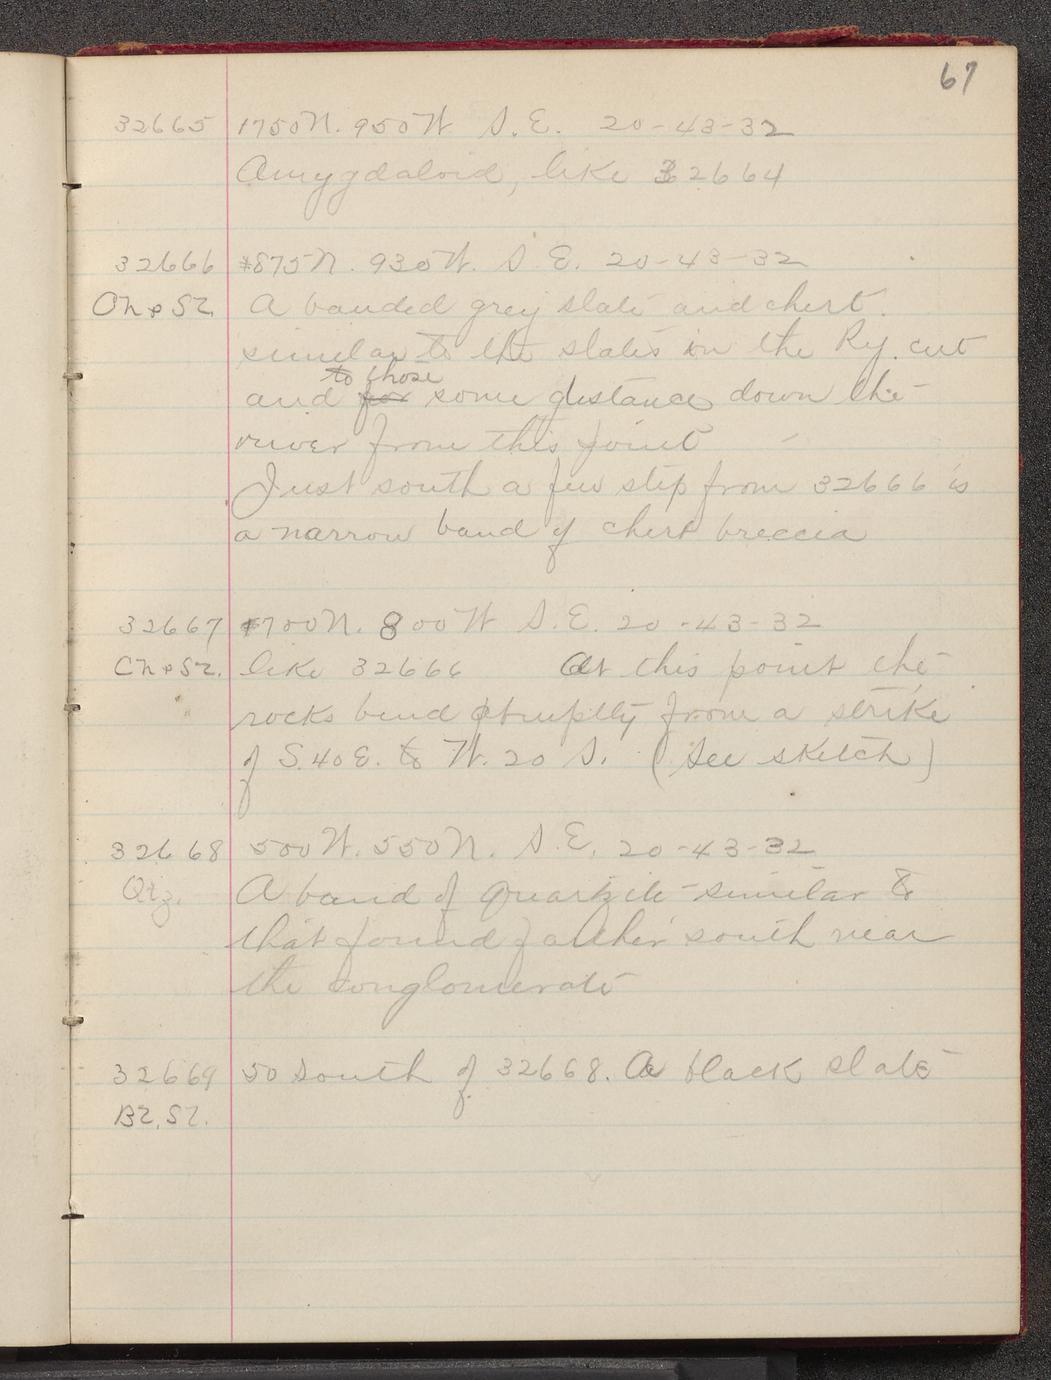 67
32665 1750N. 950W S.E. 20-43-32
Amygdaloid, like 32664
32666 875N. 930W. S.E. 20-43-32
Ch & Sl. A banded grey slate and chert.
similar to the slates in the Ry. cut
to those
and for some distance down the
river from this point
Just south a few step from 32666 is
a narrow band of chert breccia
32667 700N. 800W S.E. 20-43-32
Ch & Sl. like 32666 At this point the
rocks bend abruptly from a strike
of S.40E. to W. 20 S. (See sketch)
32668 500W. 550N. S.E. 20-43-32
Qtz. A band of quartzite similar to
that found farther south near
the conglomerate
32669 50 south of 32668. A black slate
Bl. Sl.